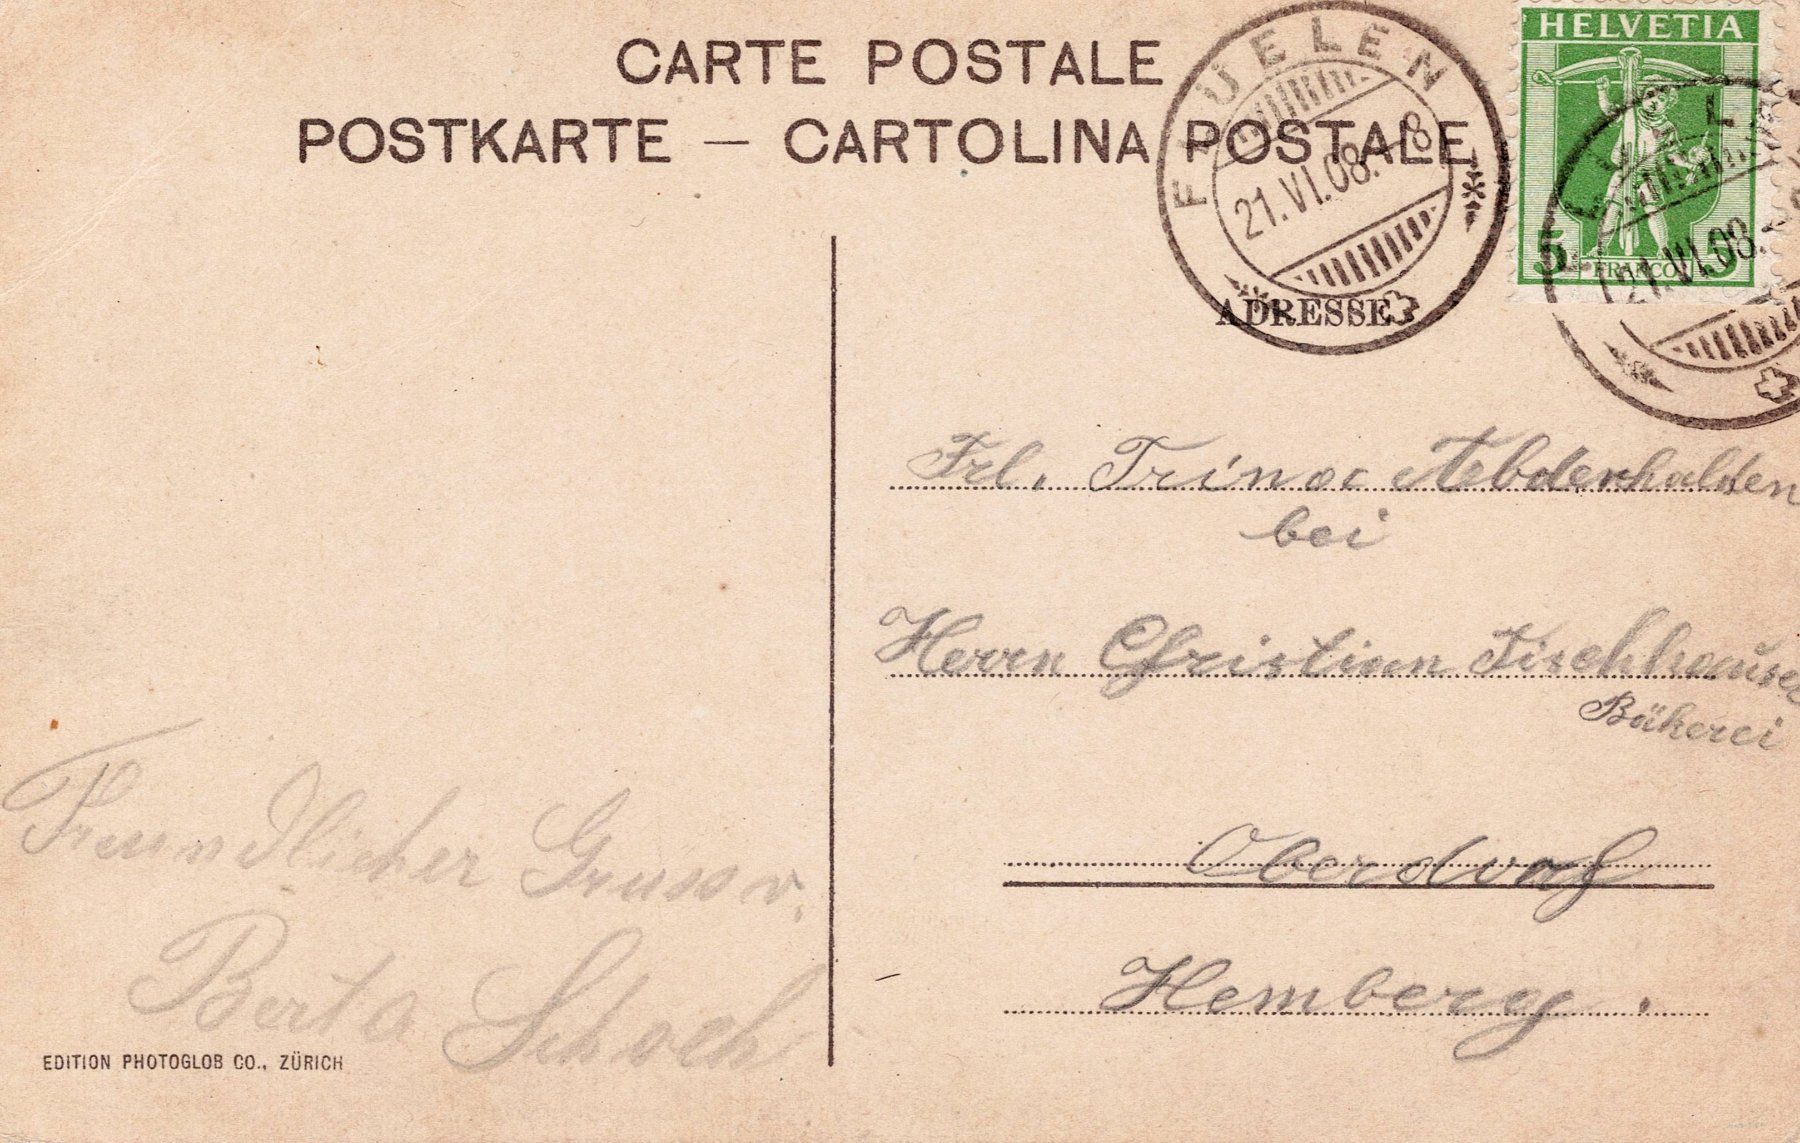 CARTE POSTALE
POSTKARTE — CARTOLINA POSTALE
FLÜELEN
21.VI.08.–8
HELVETIA
5 FRANCO 5
21.VI.08.
ADRESSE
Frl. Trina Aebderhalden
bei
Herrn Christian Fischhauser
Bäkerei
Oberdorf
Hemberg.
Freundlicher Gruss v.
Berta Schoch
EDITION PHOTOGLOB CO., ZÜRICH